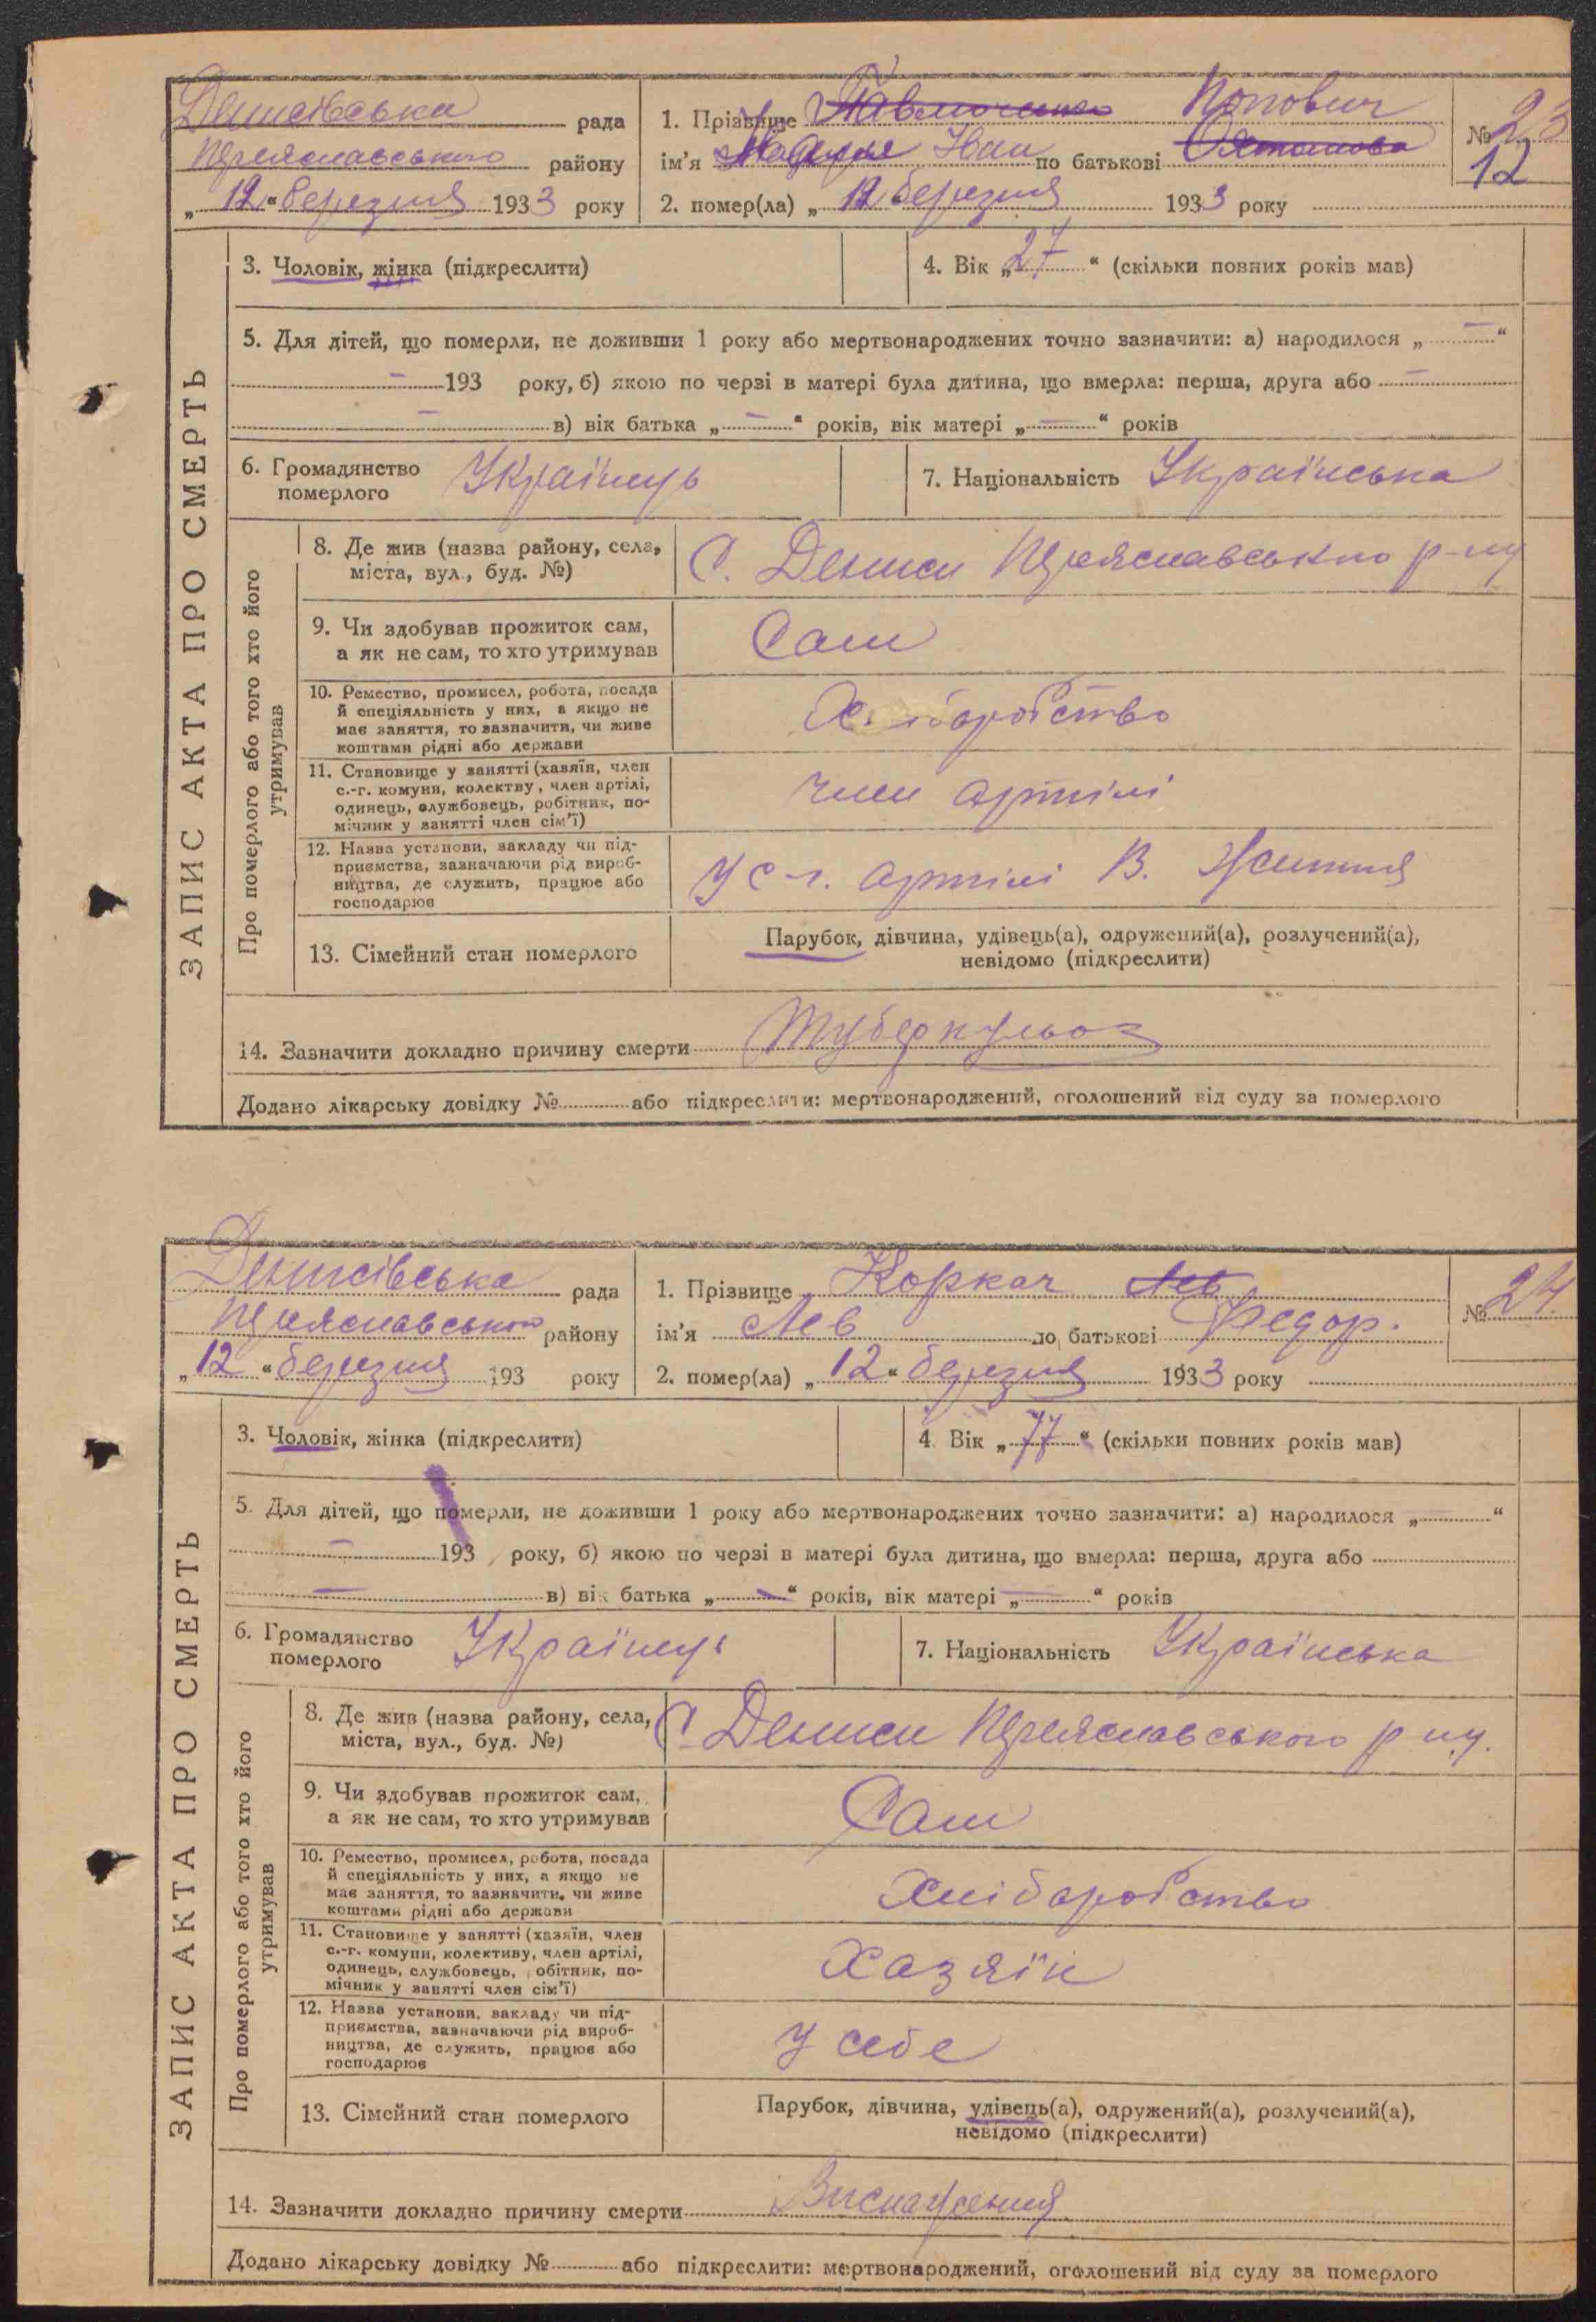 Денисівська рада
Переяславського району
„ 12 “ березня 1933 року
1. Прізвище Павлюченко Попович
ім’я Іван по батькові
2. помер(ла) „ 12 березня 1933 року
№ 23
12
ЗАПИС АКТА ПРО СМЕРТЬ
3. Чоловік, жінка (підкреслити)
4. Вік „ 27 “ (скільки повних років мав)
5. Для дітей, що померли, не доживши 1 року або мертвонароджених точно зазначити: а) народилося „ — “
— 193 року, б) якою по черзі в матері була дитина, що вмерла: перша, друга або —
— в) вік батька „ — “ років, вік матері „ — “ років
6. Громадянство
померлого
Українець
7. Національність Українська
Про померлого або того хто його
утримував
8. Де жив (назва району, села,
міста, вул., буд. №)
С. Дениси Переяславського р-ну
9. Чи здобував прожиток сам,
а як не сам, то хто утримував
Сам
10. Ремество, промисел, робота, посада
й спеціяльність у них, а якщо не
має заняття, то зазначити, чи живе
коштами рідні або держави
Хліборобство
11. Становище у занятті (хазяїн, член
с.-г. комуни, колектву, член артілі,
одинець, службовець, робітник, по-
мічник у занятті член сім’ї)
член артілі
12. Назва установи, закладу чи під-
приємства, зазначаючи рід вироб-
ництва, де служить, працює або
господарює
У с-г. артілі В. Життя
13. Сімейний стан померлого
Парубок, дівчина, удівець(а), одружений(а), розлучений(а),
невідомо (підкреслити)
14. Зазначити докладно причину смерти Туберкульоз
Додано лікарську довідку № або підкреслити: мертвонароджений, оголошений від суду за померлого
Денисівська рада
Переяславського району
„ 12 “ березня 193 року
1. Прізвище Коркач Лев
ім’я Лев по батькові Федор.
2. помер(ла) „ 12 “ березня 1933 року
№ 24
ЗАПИС АКТА ПРО СМЕРТЬ
3. Чоловік, жінка (підкреслити)
4. Вік „ 77 “ (скільки повних років мав)
5. Для дітей, що померли, не доживши 1 року або мертвонароджених точно зазначити: а) народилося „ — “
— 193 року, б) якою по черзі в матері була дитина, що вмерла: перша, друга або
— в) вік батька „ — “ років, вік матері „ — “ років
6. Громадянство
померлого
Українець
7. Національність Українська
Про померлого або того хто його
утримував
8. Де жив (назва району, села,
міста, вул., буд. №)
С. Дениси Переяславського р ну.
9. Чи здобував прожиток сам,
а як не сам, то хто утримував
Сам
10. Ремество, промисел, робота, посада
й спеціяльність у них, а якщо не
має заняття, то зазначити, чи живе
коштами рідні або держави
Хліборобство
11. Становище у занятті (хазяїн, член
с.-г. комуни, колективу, член артілі,
одинець, службовець, робітник, по-
мічник у занятті член сім’ї)
Хазяїн
12. Назва установи, закладу чи під-
приємства, зазначаючи рід вироб-
ництва, де служить, працює або
господарює
У себе
13. Сімейний стан померлого
Парубок, дівчина, удівець(а), одружений(а), розлучений(а),
невідомо (підкреслити)
14. Зазначити докладно причину смерти Виснаження
Додано лікарську довідку № або підкреслити: мертвонароджений, оголошений від суду за померлого